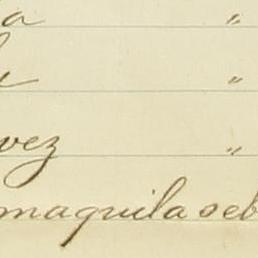 a "
"
vez "
maquila seb